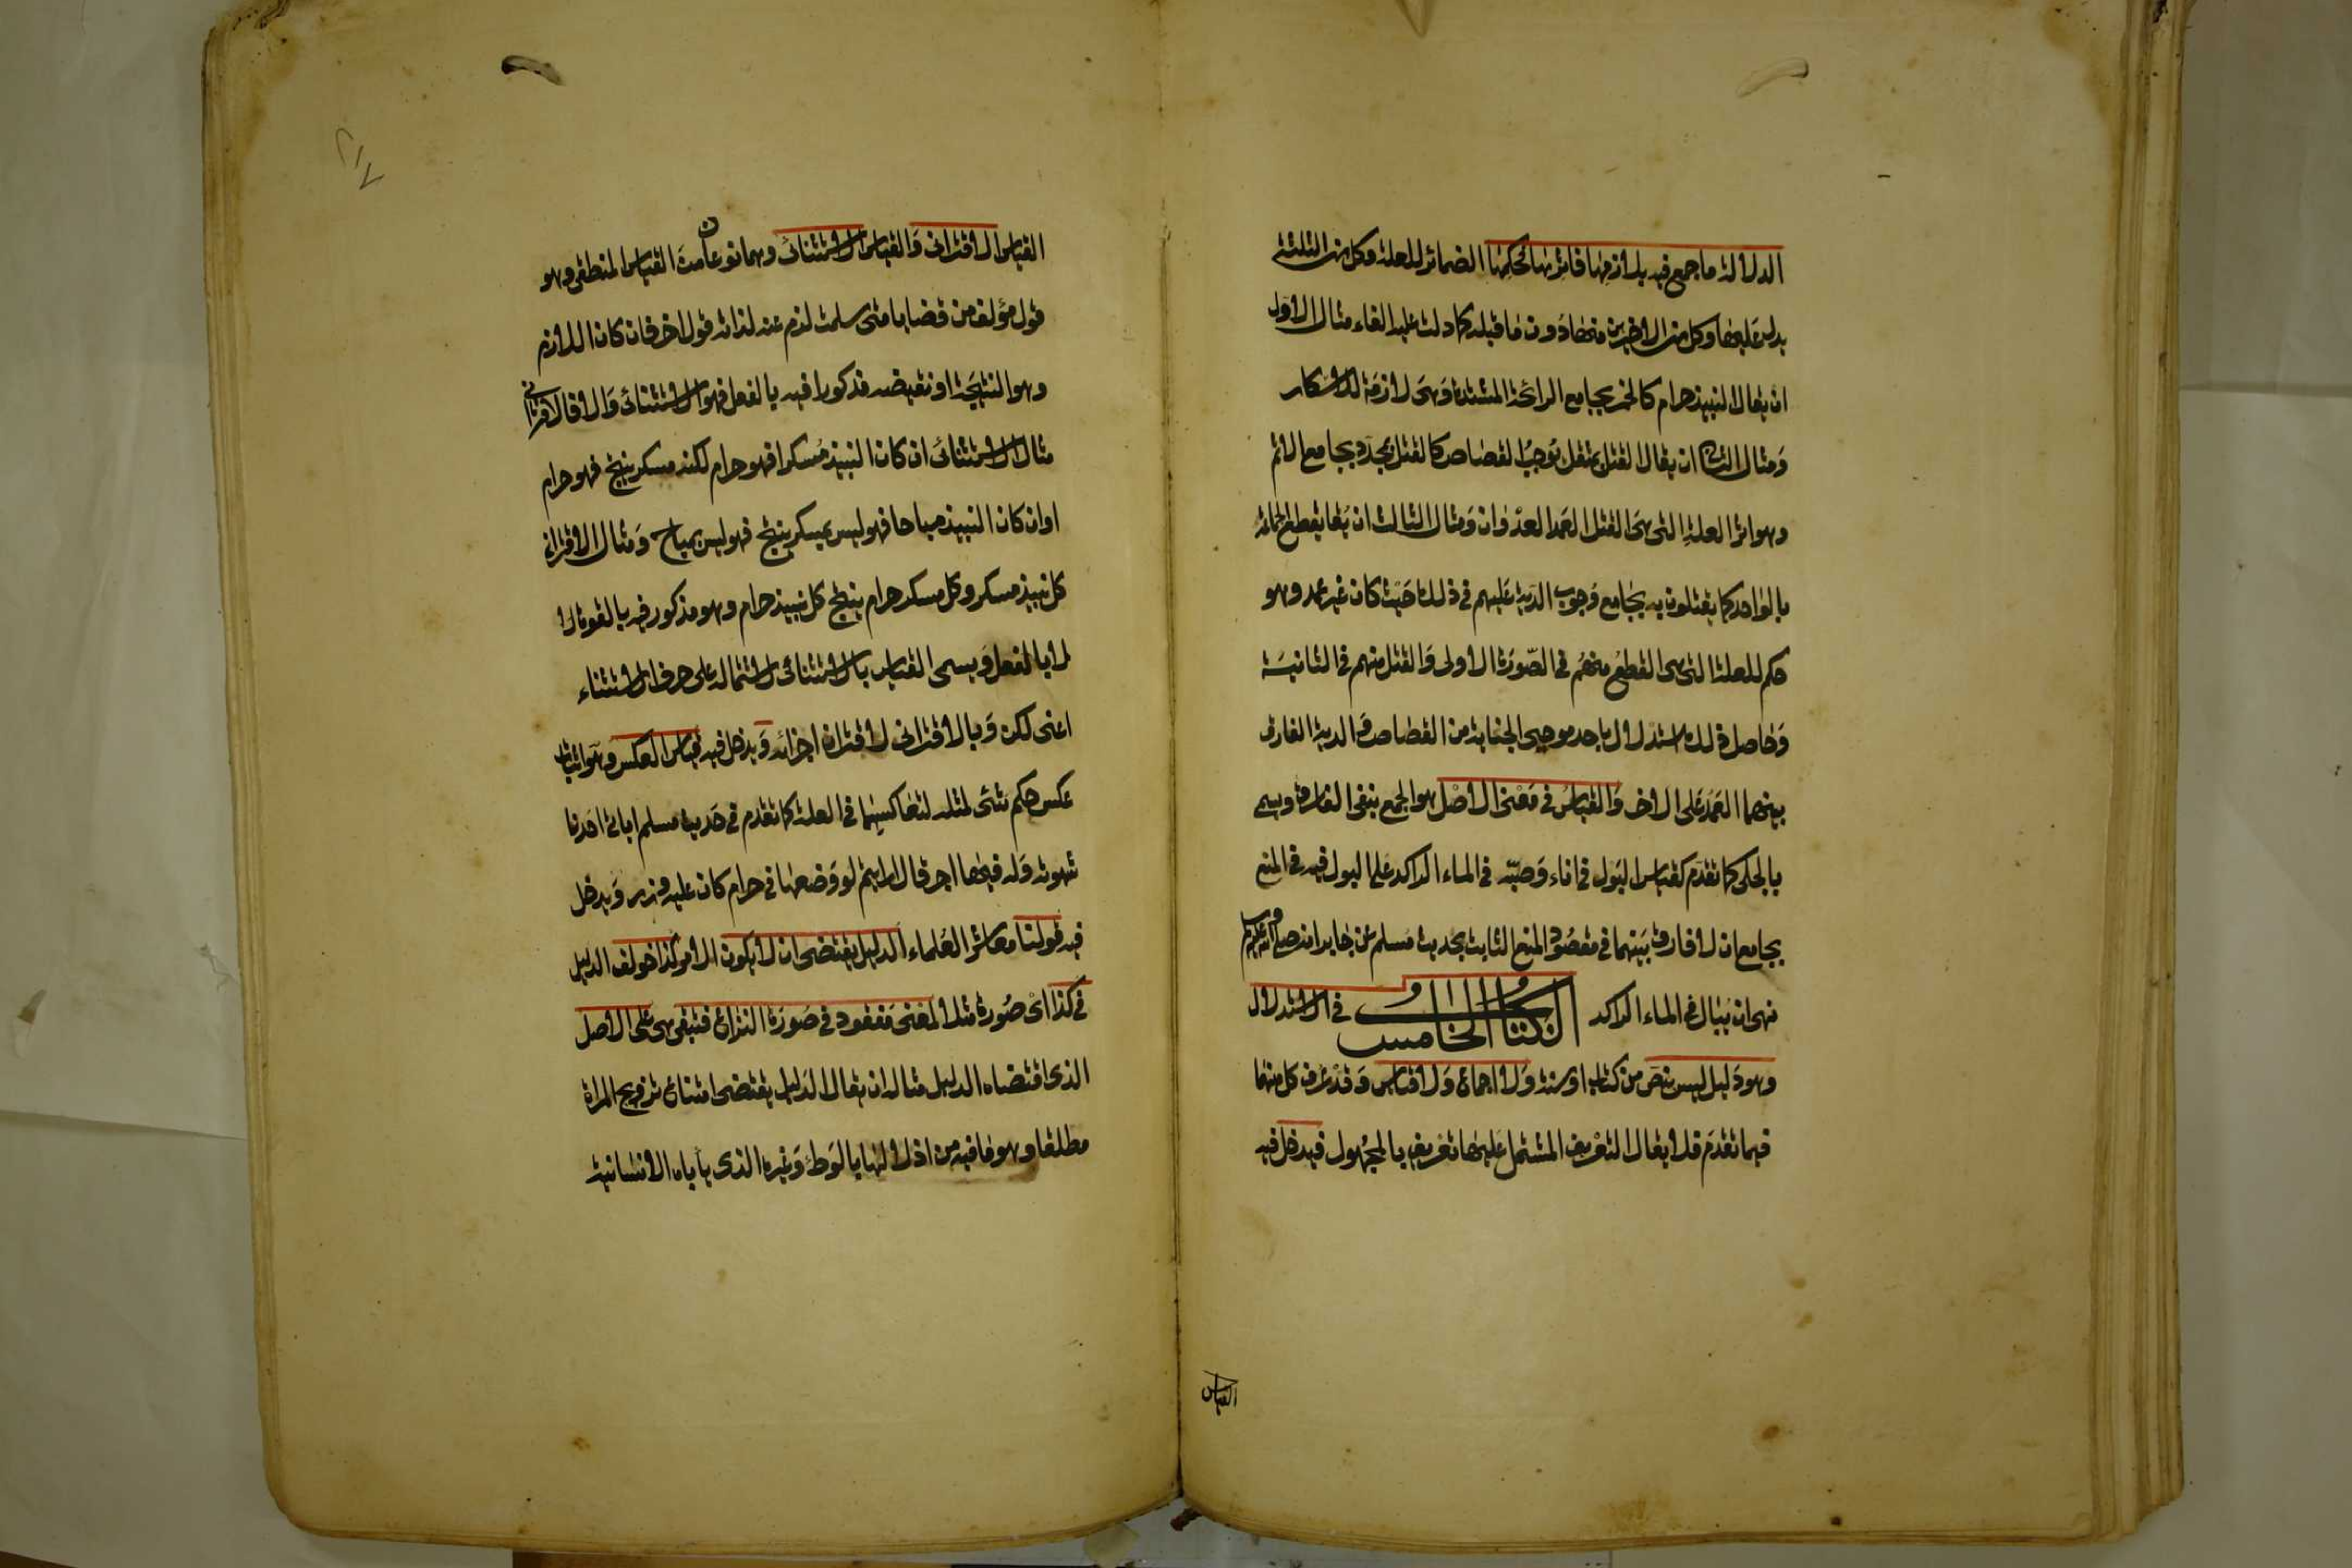 الدلالة ما جمع فيه بلازمها فاثرها فحكمها الضمائر للعلة وكل من الثلثة
يدل عليها وكل من الاخيرين منها دون ما قبله كما دلت عليه الفاء مثال الاول
ان يقال النبيذ حرام كالخمر بجامع الرائحة المشتدة وهي لازمة للاسكار
ومثال الثاني ان يقال القتل بمثقل يوجب القصاص كالقتل بمحدد بجامع الاثم
وهو اثر العلة التي هي القتل العمد العدوان ومثال الثالث ان يقا يقطع الجماعة
بالواحد كما يقتلون به بجامع وجوب الدية عليهم في ذلك حيث كان غير عمد وهو
حكم للعلة التي هي القطع منهم في الصورة الاولى والقتل منهم في الثانية
وحاصل ذلك استدلال باحد موجبي الجناية من القصاص والدية الفارق
بينهما العمد على الاخر والقياس في معنى الاصل هو الجمع بنفي الفارق ويسمى
بالجلي كما تقدم كقياس البول في اناء وصبه في الماء الراكد على البول فيه في المنع
بجامع ان لا فارق بينهما في مقصود المنع الثابت بحديث مسلم عن جابر انه صلى الله عليه وسلم
نهى ان يبال في الماء الراكد الكتاب الخامس في الاستدلال
وهو دليل ليس بنص من كتاب او سنة ولا اجماع ولا قياس وقد عرف كل منها
فيما تقدم فلا يقال التعريف المشتمل عليها تعريف بالمجهول فيدخل فيه
القياس
القياس الاقتراني والقياس الاستثنائي وهما نوعان من القياس المنطقي وهو
قول مؤلف من قضايا متى سلمت لزم عنه لذاته قول اخر فان كان اللازم
وهو النتيجة او نقيضه مذكورا فيه بالفعل فهو الاستثنائي والا فالاقتراني
مثال الاستثنائي ان كان النبيذ مسكرا فهو حرام لكنه مسكر ينتج فهو حرام
او ان كان النبيذ مباحا فهو ليس بمسكر ينتج فهو ليس بمباح ومثال الاقتراني
كل نبيذ مسكر وكل مسكر حرام ينتج كل نبيذ حرام وهو مذكور فيه بالقوة لا
لا بالفعل ويسمى القياس بالاستثنائي لاشتماله على حرف الاستثناء
اعني لكن وبالاقتراني لاقتران اجزائه ويدخل فيه قياس العكس وهو اثبات
عكس حكم شئ لمثله لتعاكسهما في العلة كما تقدم في حديث مسلم اياتي احدنا
شهوته وله فيها اجر قال ارايتم لو وضعها في حرام كان عليه وزر ويدخل
فيه قولنا معاشر العلماء الدليل يقتضي ان لا يكون الامر كذا خولف الدليل
في كذا اي صورة مثلا لمعنى مفقود في صورة النزاع فتبقى هي على الاصل
الذي اقتضاه الدليل مثاله ان يقال الدليل يقتضي امتناع تزويج المراة
مطلقا وهو ما فيه من اذلالها بالوطئ وغيره الذي ياباه الانسانية